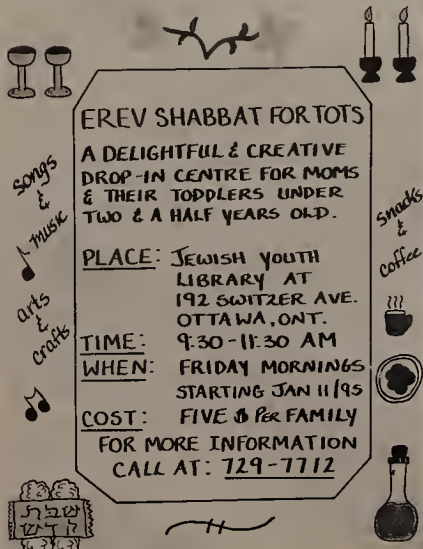 EREV SHABBAT FOR TOTS
A DELIGHTFUL & CREATIVE
DROP-IN CENTRE FOR MOMS
& THEIR TODDLERS UNDER
TWO & A HALF YEARS OLD.
PLACE: JEWISH YOUTH
LIBRARY AT
192 SWITZER AVE.
OTTAWA, ONT.
TIME: 9:30-11:30 AM
WHEN: FRIDAY MORNINGS
STARTING JAN 11/95
COST: FIVE $ PER FAMILY
FOR MORE INFORMATION
CALL AT: 729-7712
songs
&
music
arts
&
crafts
snacks
&
coffee
שבת
קדש